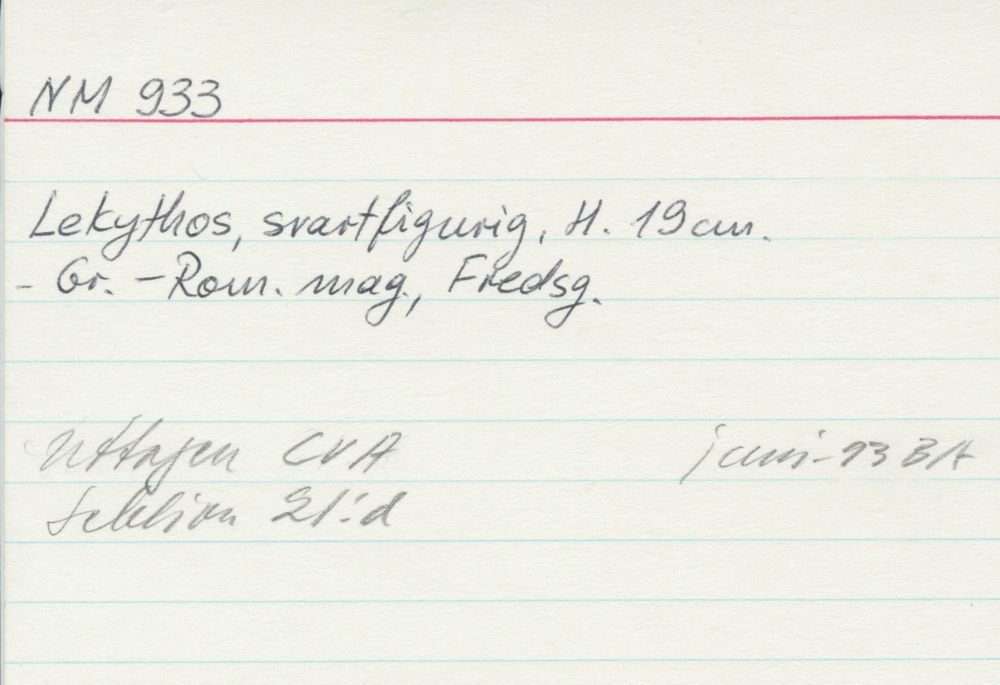 NM 933
Lekythos, svartfigurig, H. 19 cm.
- Gr. - Rom. mag., Fredsg.
Uttagen CVA juni-93 BA
Sektion 21:d